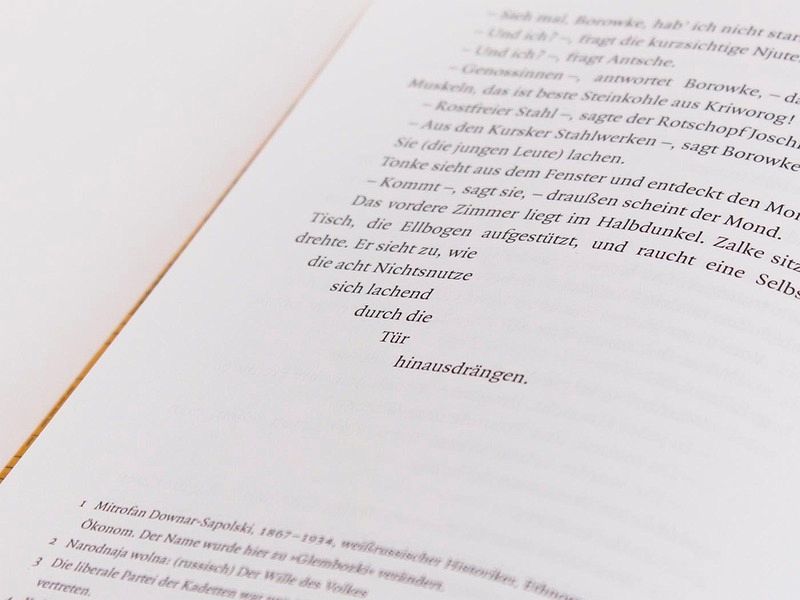 – Sieh mal, Borowke, hab' ich nicht
– Und ich? –, fragt die kurzsichtige Njute.
– Und ich? –, fragt Antsche.
– Genossinnen –, antwortet Borowke, –
Muskeln, das ist beste Steinkohle aus Kriworog!
– Rostfreier Stahl –, sagte der Rotschopf
– Aus den Kursker Stahlwerken –, sagt Borowke
Sie (die jungen Leute) lachen.
Tonke sieht aus dem Fenster und entdeckt den
– Kommt –, sagt sie, – draußen scheint der Mond.
Das vordere Zimmer liegt im Halbdunkel. Zalke
Tisch, die Ellbogen aufgestützt, und raucht eine
drehte. Er sieht zu, wie
die acht Nichtsnutze
sich lachend
durch die
Tür
hinausdrängen.
1 Mitrofan Downar-Sapolski, 1867–1934, weißrussischer Historiker,
Ökonom. Der Name wurde hier zu »Glembozki« verändert.
2 Narodnaja wolna: (russisch) Der Wille des Volkes
3 Die liberale Partei der Kadetten war
vertreten.